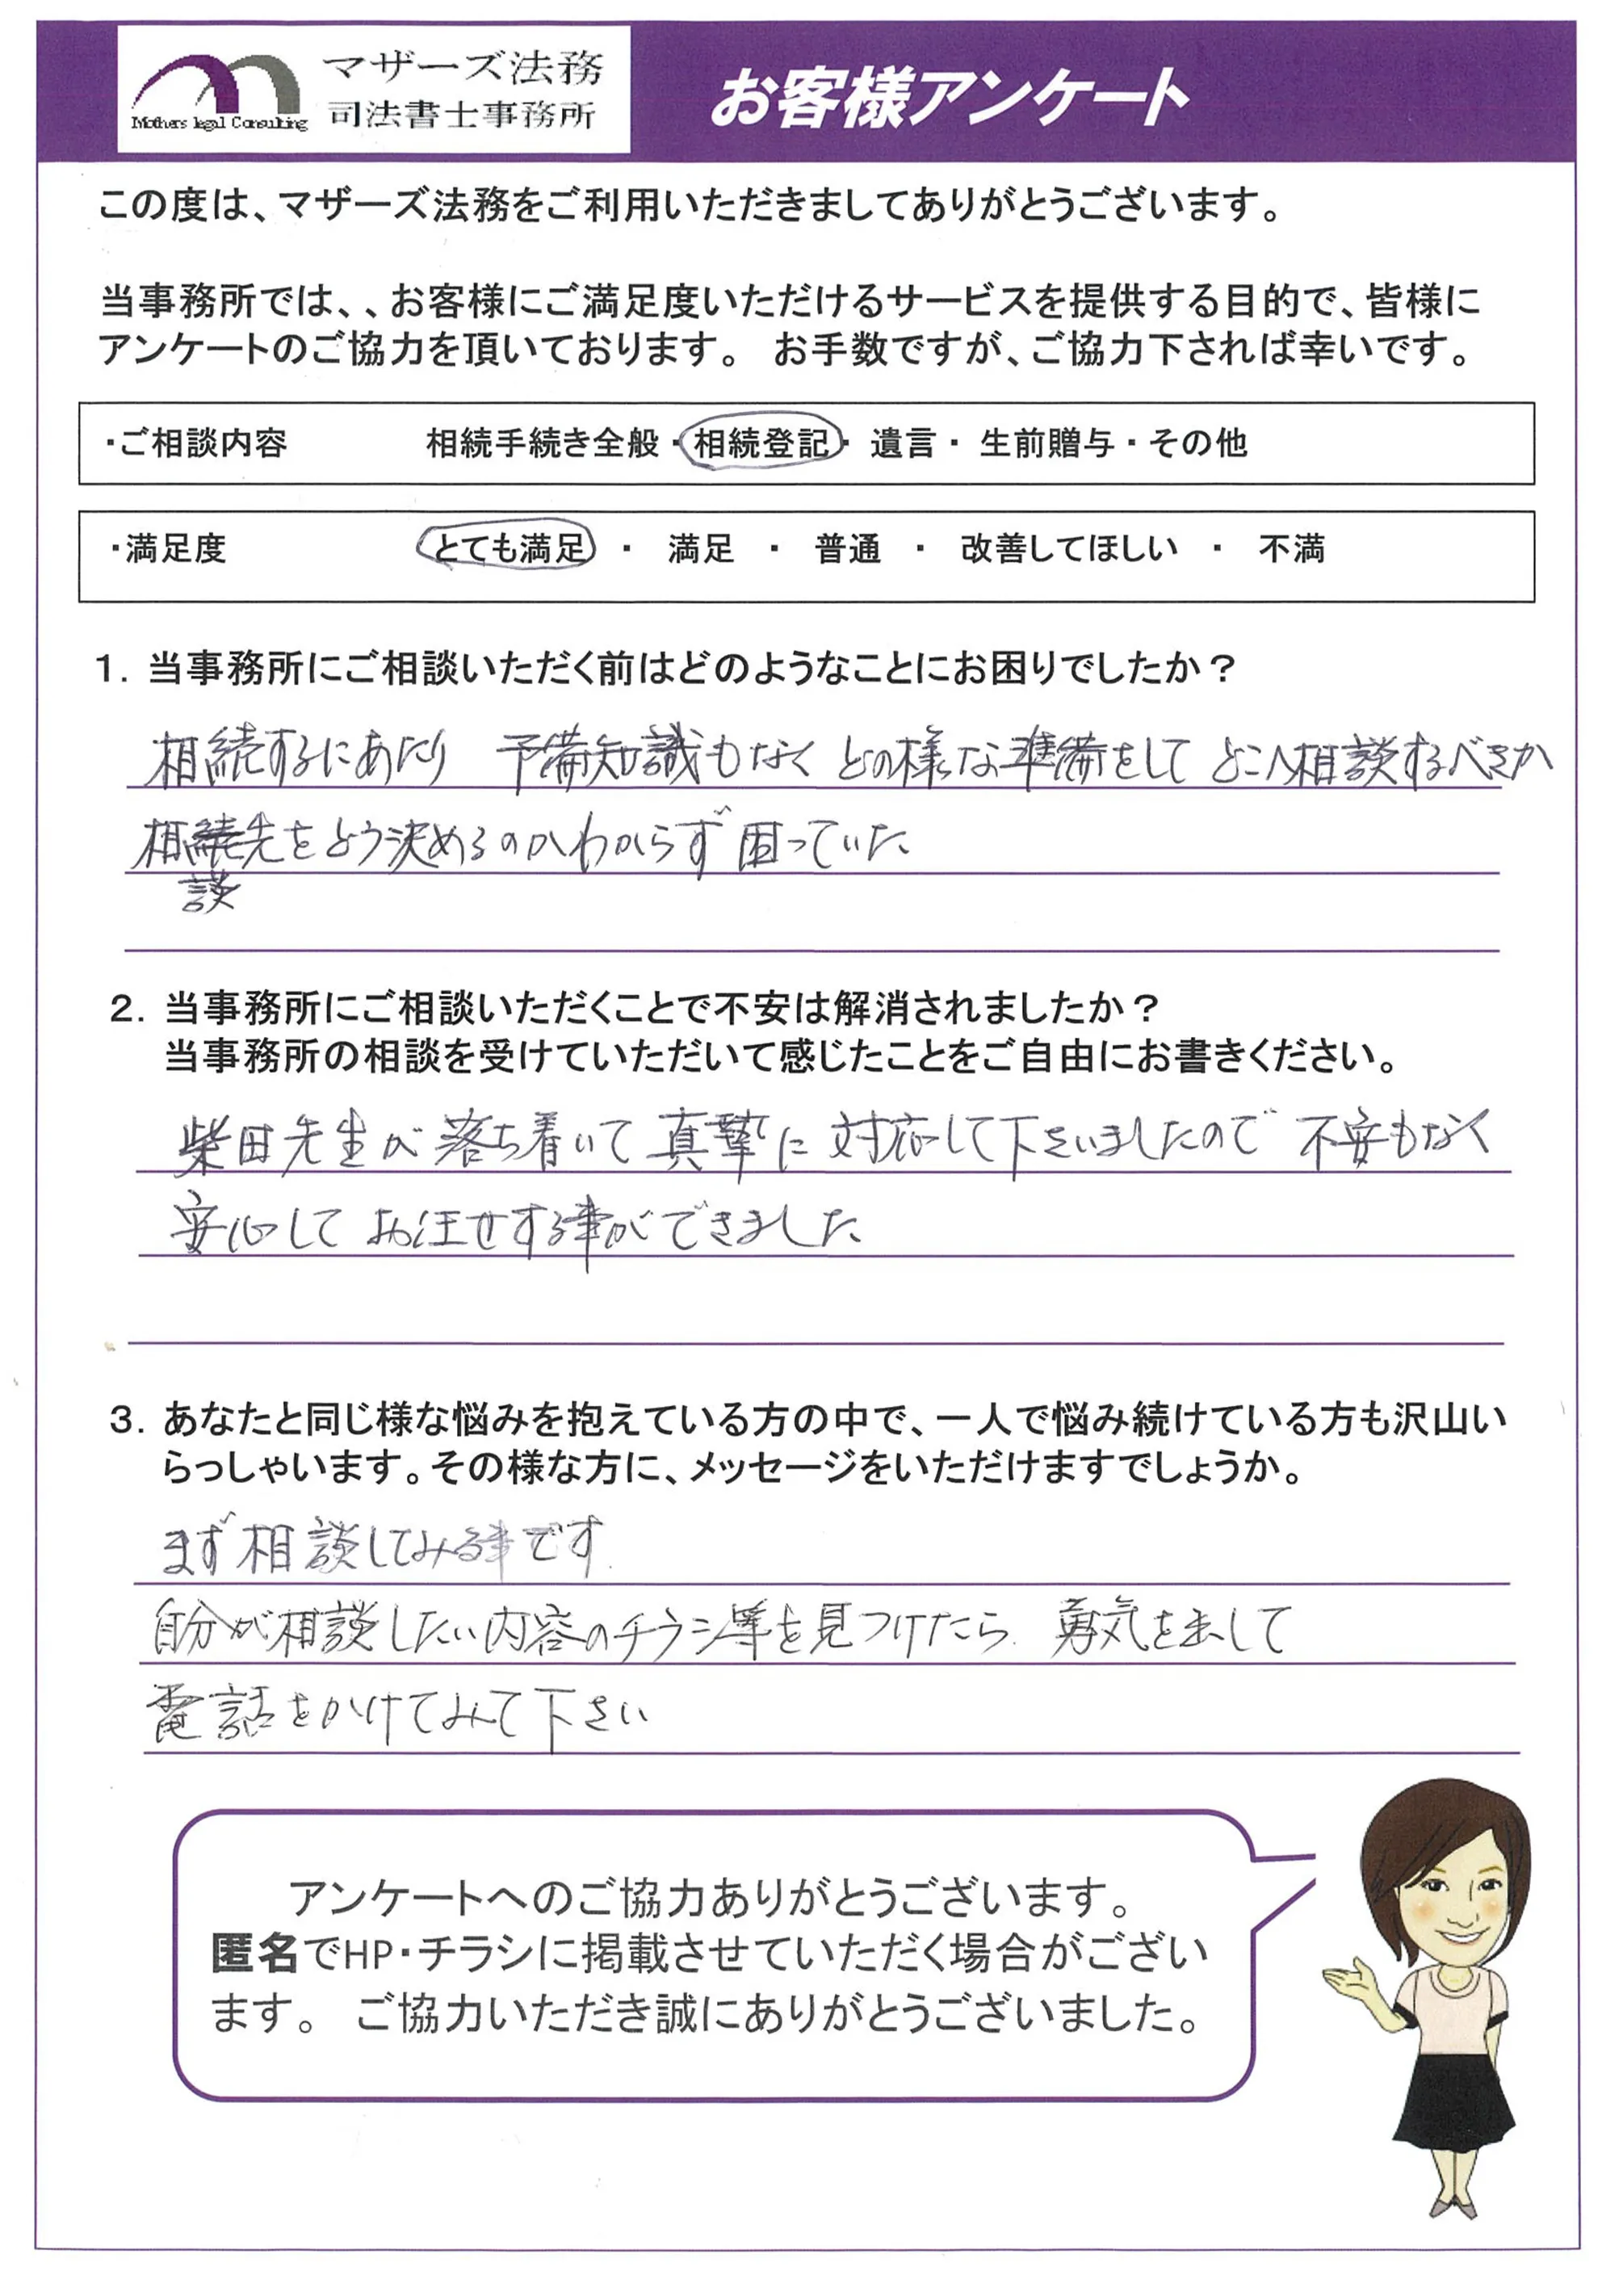 マザーズ法務
司法書士事務所
Mothers legal Consulting
お客様アンケート
この度は、マザーズ法務をご利用いただきましてありがとうございます。
当事務所では、、お客様にご満足度いただけるサービスを提供する目的で、皆様に
アンケートのご協力を頂いております。 お手数ですが、ご協力下されば幸いです。
・ご相談内容 相続手続き全般・相続登記・ 遺言・ 生前贈与・その他
・満足度 とても満足 ・ 満足 ・ 普通 ・ 改善してほしい ・ 不満
1. 当事務所にご相談いただく前はどのようなことにお困りでしたか？
相続するにあたり 予備知識もなく どの様な準備をして どこへ相談するべきか
相続先をどう決めるのかわからず困っていた
談
2. 当事務所にご相談いただくことで不安は解消されましたか？
当事務所の相談を受けていただいて感じたことをご自由にお書きください。
柴田先生が 落ち着いて 真摯に 対応して下さいましたので 不安もなく
安心して お任せする事ができました
3. あなたと同じ様な悩みを抱えている方の中で、一人で悩み続けている方も沢山い
らっしゃいます。その様な方に、メッセージをいただけますでしょうか。
まず相談してみる事です.
自分が相談したい内容のチラシ等を見つけたら 勇気を出して
電話をかけてみて下さい
アンケートへのご協力ありがとうございます。
匿名でHP・チラシに掲載させていただく場合がござい
ます。 ご協力いただき誠にありがとうございました。